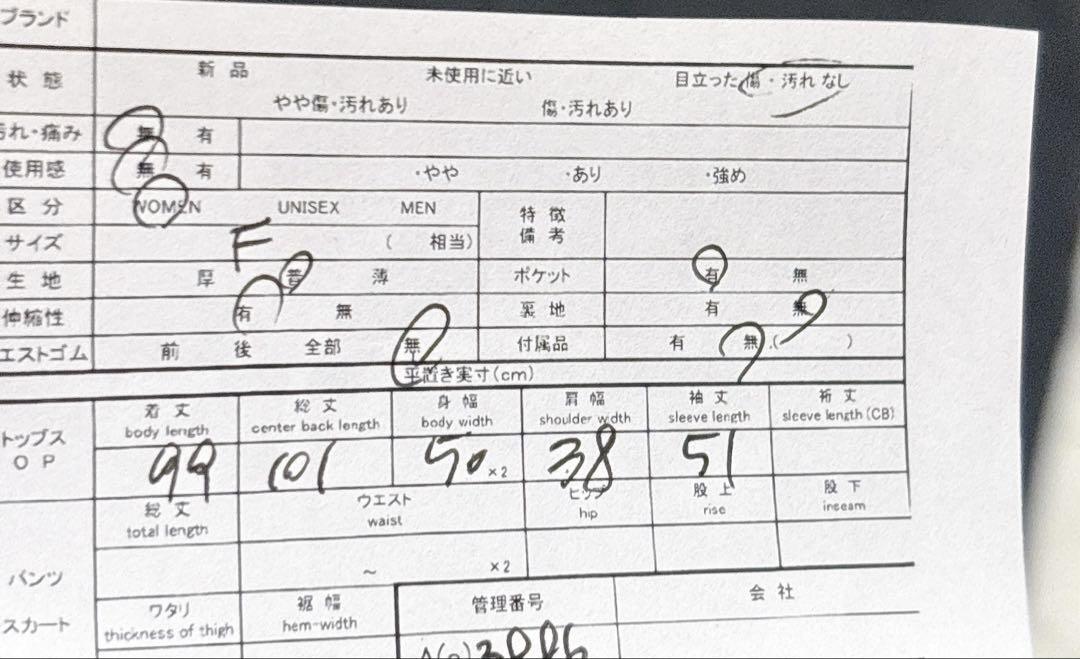 ブランド
状態 新品 未使用に近い 目立った傷・汚れなし
やや傷・汚れあり 傷・汚れあり
汚れ・痛み 無 有
使用感 無 有 ・やや ・あり ・強め
区分 WOMEN UNISEX MEN 特徴
サイズ F ( 相当) 備考
生地 厚 普 薄 ポケット 有 無
伸縮性 有 無 裏地 有 無
エストゴム 前 後 全部 無 付属品 有 無 ( )
平置き実寸(cm)
着丈 総丈 身幅 肩幅 袖丈 裄丈
body length center back length body width shoulder width sleeve length sleeve length(CB)
トップス
OP
99 101 50 ×2 38 51
総丈 ウエスト ヒップ 股上 股下
total length waist hip rise inseam
パンツ ~ ×2
スカート ワタリ 裾幅 管理番号 会社
thickness of thigh hem-width